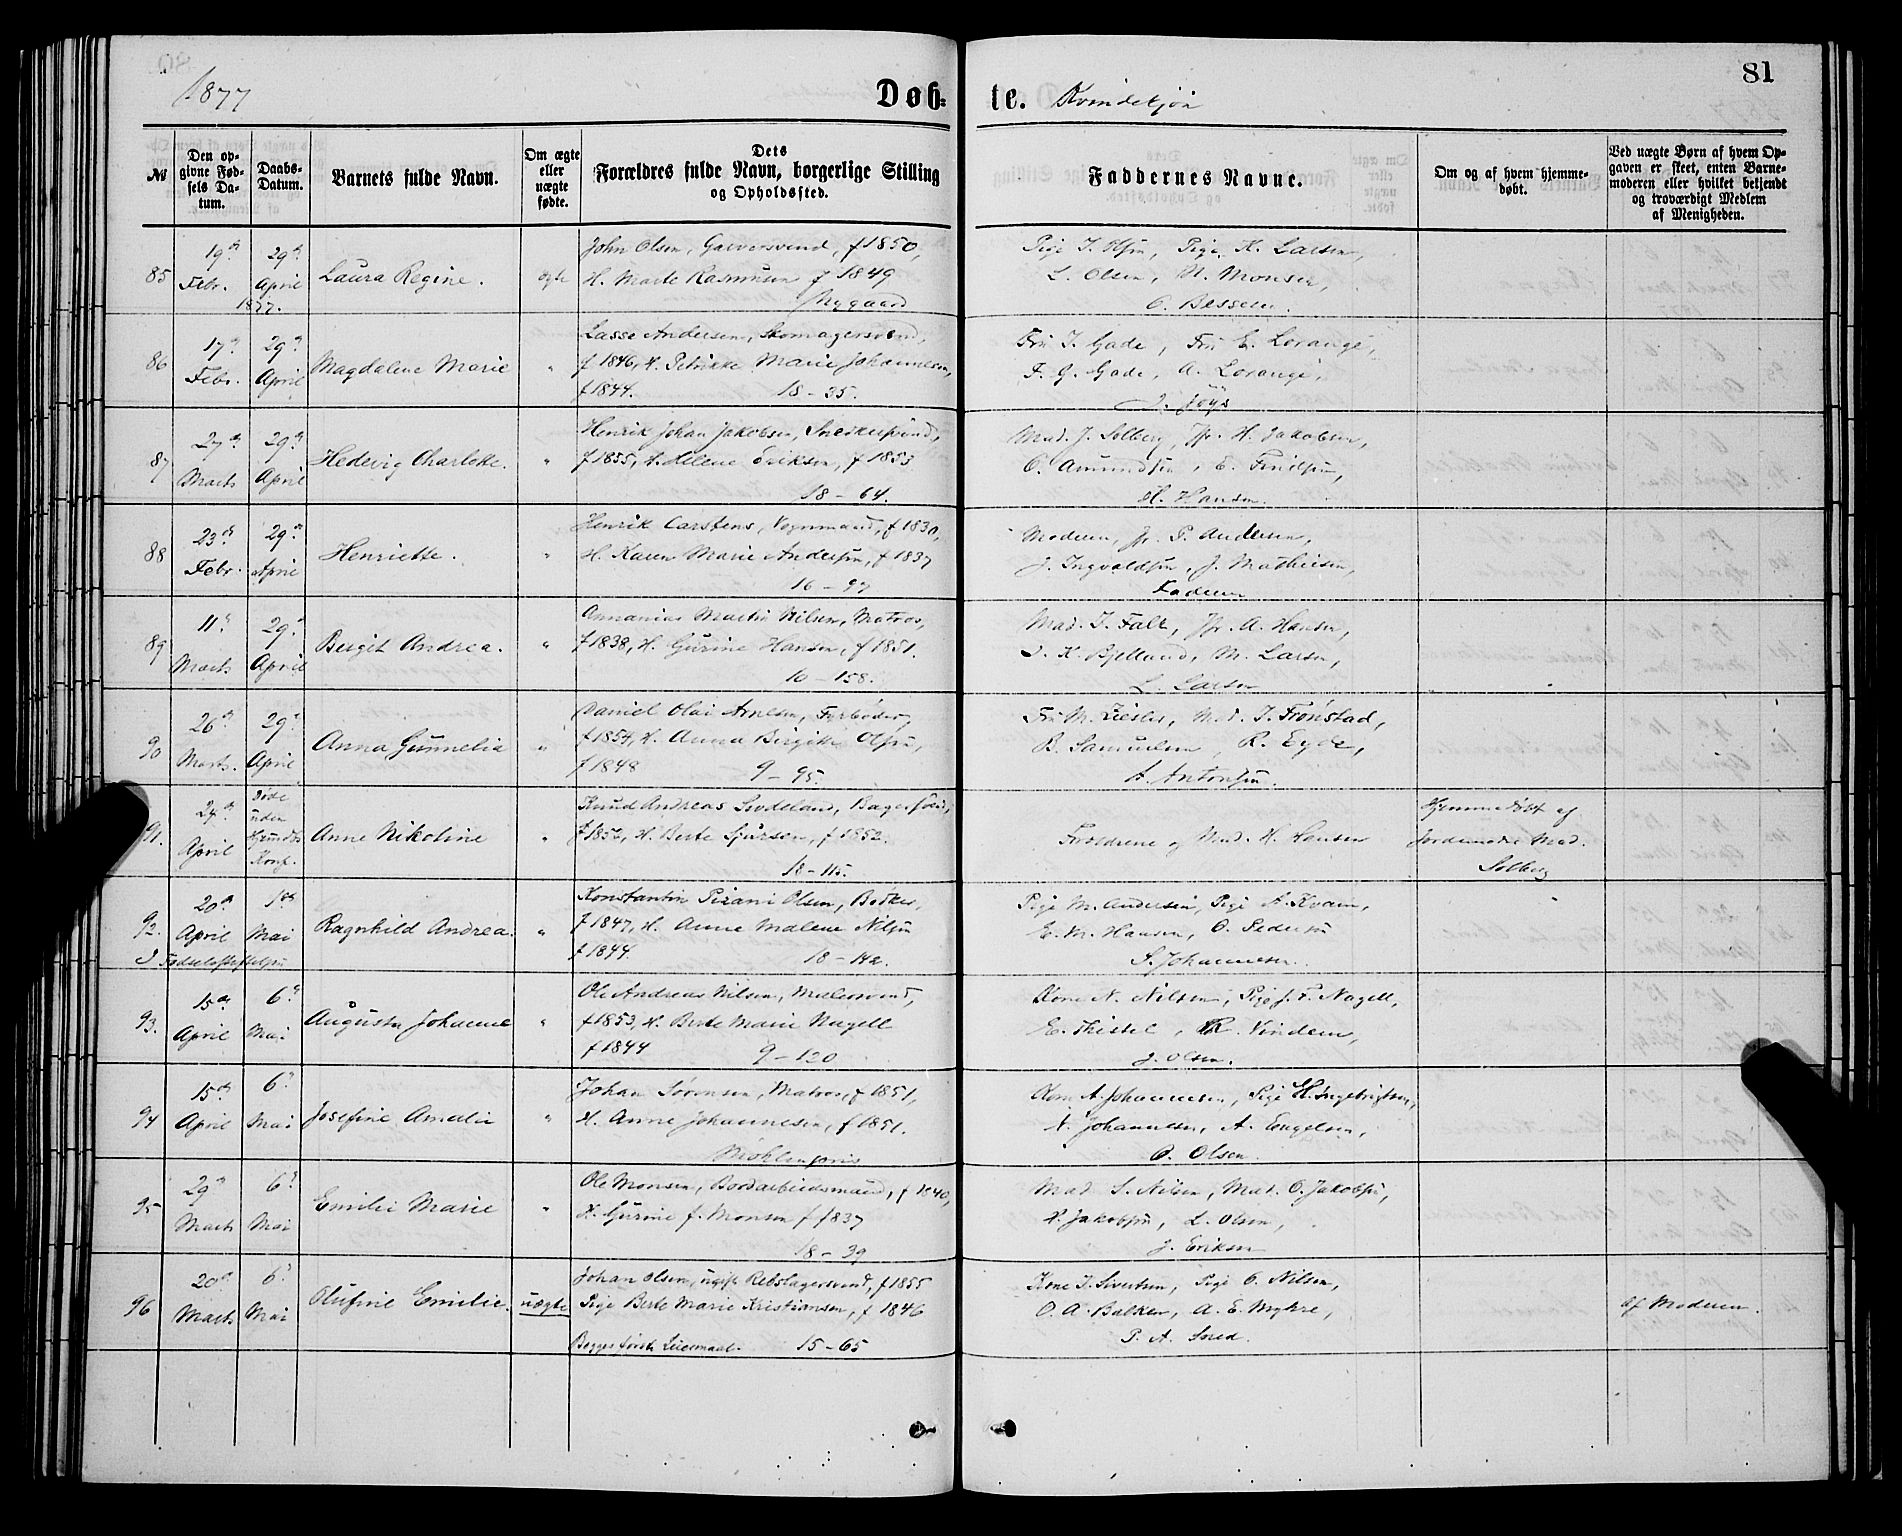 1877
Døb-
te. Kvindekjøn
81
№
Den opgivne Fødsels Datum.
Daabs-Datum.
Barnets fulde Navn.
Om ægte eller uægte fødte.
Dets Forældres fulde Navn, borgerlige Stilling og Opholdssted.
Faddernes Navne.
Om og af hvem hjemmedøbt.
Ved uægte Børn af hvem Opgaven er skeet, enten Barnemoderen eller hvilket bekjendt og troværdigt Medlem af Menigheden.
85
19de Febr.
29de April 1877.
Laura Regine.
ægte
John Olsen, Garversvend, f 1850,
H. Marte Rasmusen f 1849
Nygaard
Pige K. Larsen,
L. Olsen, N. Monsen,
86
17de Febr.
29de April
Magdalene Marie
"
Lasse Andersen, Skomagersvend,
f 1846, H. Petrikke Marie Johannesen,
f 1844. 18-35.
Fru I. Gade, Fru E. Lorange,
F. G. Gade, A. Lorange,
87
27de Marts
29de April
Hedevig Charlotte.
"
Henrik Johan Jakobsen, Snedkersvend,
f 1855, H. Helene Eriksen, f 1853
18-64.
Mad. J. Solberg, Jfr. H. Jakobsen,
O. Amundsen,
H. Hansen.
88
23de Febr.
29de April
Henriette.
"
Henrik Carstens, Vognmand, f 1830,
H. Karen Marie Andersen, f 1837
16-97
Moderen, Jfr. P. Andersen,
J. Ingvaldsen, J. Mathiesen,
Faderen
89
11de Marts
29de April
Bergit Andrea.
"
Annanias Martin Nilsen, Matros,
f 1838, H. Gurine Hansen, f 1851.
10-158.
Mad. I. Falt, Jfr. A. Hansen,
I. K. Bjelland, M. Larsen,
L. Larsen
90
26de Marts.
29de April
Anna Gunnelia
"
Daniel Olai Arnesen, Fyrbøder,
f 1854, H. Anna Birgitte Olsen,
f 1848 9-95.
Fru M. Ziesler, Mad. I. Frønstad,
B. Samuelsen, R. Eyde,
A. Antonsen.
91.
24de April
Døde uden Hjemdbs Konf.
Anne Nikoline
"
Knud Andreas Svodeland, Bagersvend,
f 1852, H. Berte Sjursen, f 1852.
18-115.
Forældrene og Mad. H. Hansen
Hjemmedøbt af
Jordemoder Mad.
Solberg
92.
20de April
1ste Mai
I Fødselsstiftelsen
Ragnhild Andrea.
"
Konstantin Pizani Olsen, Bødker,
f 1847, H. Anne Malene Nilsen
f 1844. 18-142.
Pige M. Andersen, Pige A. Kvam,
E. M. Hansen, O. Pedersen
S. Johannesen.
93.
15de April
6te Mai
Augusta Johanne
"
Ole Andreas Nilsen, Malersvend,
f 1853, H. Berte Marie Nagell
f 1844 9-120
Kone N. Nilsen, Pige J. F. Nagell,
E. Thistel, R. Vindem,
J. Olsen.
94
15de April
6te Mai
Josefine Amalie
"
Johan Sørensen, Matros, f 1851,
H. Anne Johannesen, f 1851.
Møhlenpris
Kone A. Johannesen, Pige H. Ingebrigtsen,
N. Johannesen, A. Engelsen,
O. Olsen.
95
29de Marts
6te Mai
Emilie Marie
"
Ole Monsen, Bordarbeidsmand, f 1840,
H. Gurine f. Monsen f 1837
18-39
Mad S. Nilsen, Mad. O. Jakobsen,
H. Jakobsen, L. Olsen,
J. Eriksen
96
20de Marts
6te Mai
Olufine Emilie.
uægte
Johan Olsen, ugift Rebslagersvend, f 1855
Pige Berte Marie Kristiansen, f 1846
Begges første Leiermaal. 15-65
Kone I. Sivertsen, Pige O. Nilsen,
O. A. Balken, A. E. Myhre,
P. A. Sored.
Af Moderen.